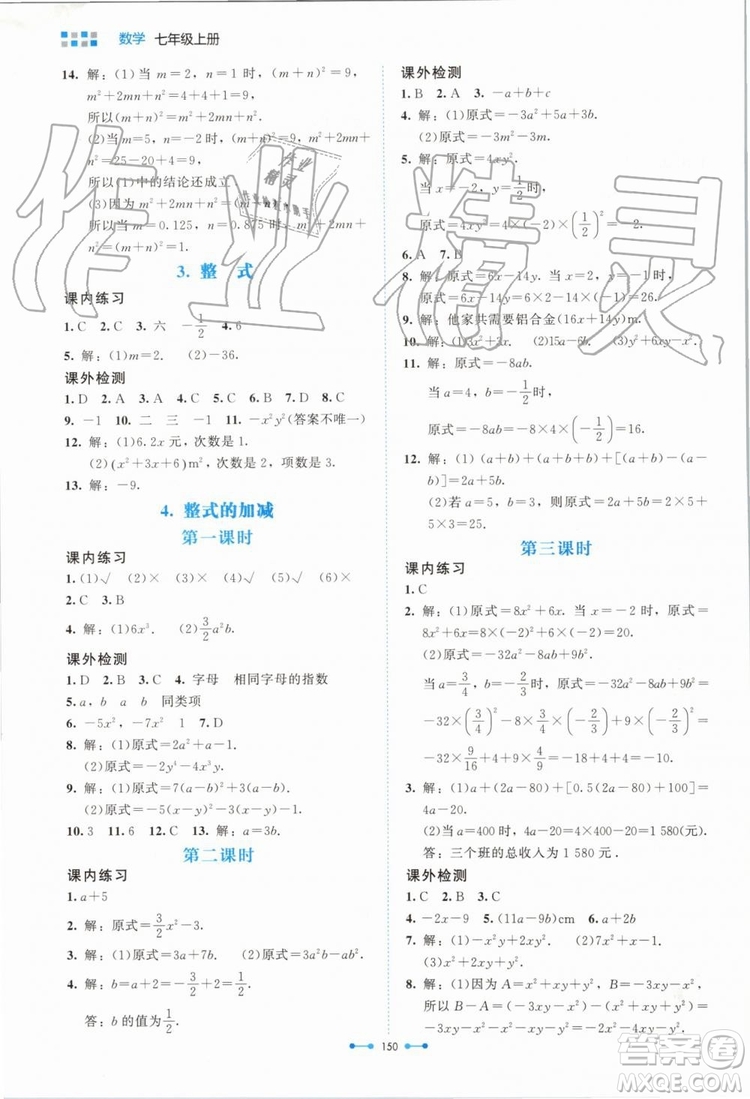 数学 七年级上册
14. 解：(1)当 m=2，n=1 时，(m+n)²=9，
m²+2mn+n²=4+4+1=9，
所以(m+n)²=m²+2mn+n².
(2)当 m=5，n=-2 时，(m+n)²=9，m²+2mn+
n²=9，
所以(1)中的结论还成立.
(3)因为 m²+2mn+n²=(m+n)²，
所以当 m=0.125，n=0.875 时，m²+2mn+
3. 整 式
课内练习
1. C 2. C 3. 六 -1/2 4. 6
5. 解：(1)m=2. (2)-36.
课外检测
1. D 2. A 3. A 4. D 5. B 6. D 7. D 8. C
9. -1 10. 二 三 -1 11. -x²y²(答案不唯一)
12. 解：(1)6.2x 元，次数是 1.
(2)(x²+3x+6)m²，次数是 2，项数是 3.
13. 解：-9.
4. 整式的加减
第一课时
课内练习
1. (1)√ (2)× (3)× (4)× (5)√ (6)×
2. C 3. B
4. 解：(1)6x³. (2)3/2a²b.
课外检测
1. D 2. B 3. C 4. 字母 相同字母的指数
5. a，b a b 同类项
6. -5x²，-7x² 1 7. D
8. 解：(1)原式=2a²-ab.
(2)原式=-2y⁴-4x³y.
9. 解：(1)原式=7(a-b)²-(a-b).
(2)原式=-5(x-y)²-(x-y)³.
10. 3 11. 6 12. C 13. 解：a=3b.
第二课时
课内练习
1. a+5
2. 解：原式=3/2x²-3.
3. 解：(1)原式=3a+7b. (2)原式=3a²b-ab².
4. 解：b=a+2=-3/2+2=1/2.
答：b 的值为1/2.
课外检测
1. B 2. A 3. -a+b+c
4. 解：(1)原式=-3a²+5a+3b.
(2)原式=-3m²-m.
5. 解：原式=4xy².
原式=4xy²=4×(-1)×(1/2)²=-1.
6. A 7. B
8. 解：原式=6x-14y.
9. 解：他家共需要铝合金(16x+14y)m.
10. 解：(1)3x²+x. (2)15x². (3)y²+6x.
11. 解：原式=-8ab.
当 a=4，b=-1/2时，
原式=-8ab=-8×4×(-1/2)=16.
12. 解：(1)(a+b)+(a+b+a-b)+[(a+b+a-
b)+5]=2a+5b.
(2)若 a=5，b=3，则原式=
5×3=25.
第三课时
课内练习
1. C
2. 解：(1)原式=8x²+6x. 当 x=-2 时，原式=
8x²+6x=8×(-2)²+6×(-2)=20.
(2)原式=-32a²-6ab+9b².
当 a=3/4，b=-2/3时，原式=-32a²-6ab+9b²=
-32×(3/4)²-6×3/4×(-2/3)+9×(-2/3)²=
-32×9/16+4+9×4/9=-18+4+4=-10.
3. 解：(1)a+(2a-80)+[0.5(2a-80)+100]=
4a-20.
(2)当 a=400 时，4a-20=4×400-20=1 580.
答：三个班的总收入为 1 580 元.
课外检测
1. C 2. B 3. C
4. -2x-9 5. (11a-9b)cm 6. a+2b
7. 解：(1)-x²y-xy². (2)-x²y+xy².
(3)x²y+xy².
8. 解：(1)因为 A=x²+xy+y²，B=-3xy-x²，
所以 B-A=(-3xy-x²)-(x²+xy+y²)=
-3xy-x²-x²-xy-y²=-2x²-4xy-y².
150
作业精灵
作业
精灵
答案圈
MXQE.COM